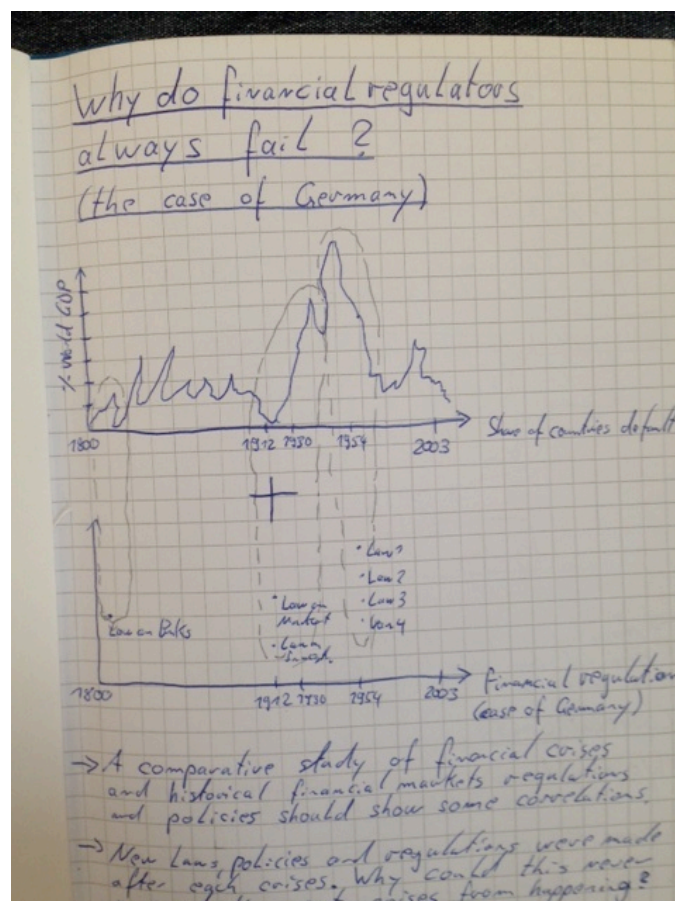 Why do financial regulators
always fail ?
(the case of Germany)
% World GDP
1800
1912
1930
1954
2003
Share of countries default
Law on Banks
Law on
Market
Law on
Law 1
Law 2
Law 3
Law 4
1800
1912
1930
1954
2003
financial regulation
(case of Germany)
→ A comparative study of financial crises
and historical financial markets regulations
and policies should show some correlations.
→ New Laws, policies and regulations were made
after each crises. Why could this never
crises from happening?